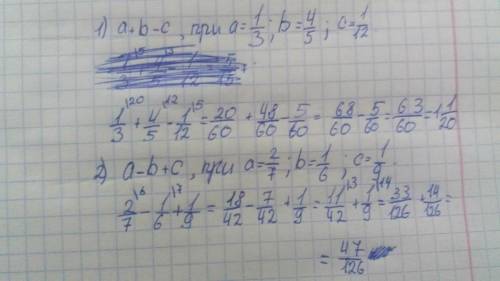 1) a+b-c, при a=1/3; b=4/5; c=1/12.
1/3 \20 + 4/5 \12 - 1/12 \5 = 20/60 + 48/60 - 5/60 = 68/60 - 5/60 = 63/60 = 1 1/20
2) a-b+c, при a=2/7; b=1/6; c=1/9.
2/7 \6 - 1/6 \7 + 1/9 = 18/42 - 7/42 + 1/9 = 11/42 \3 + 1/9 \14 = 33/126 + 14/126 =
= 47/126